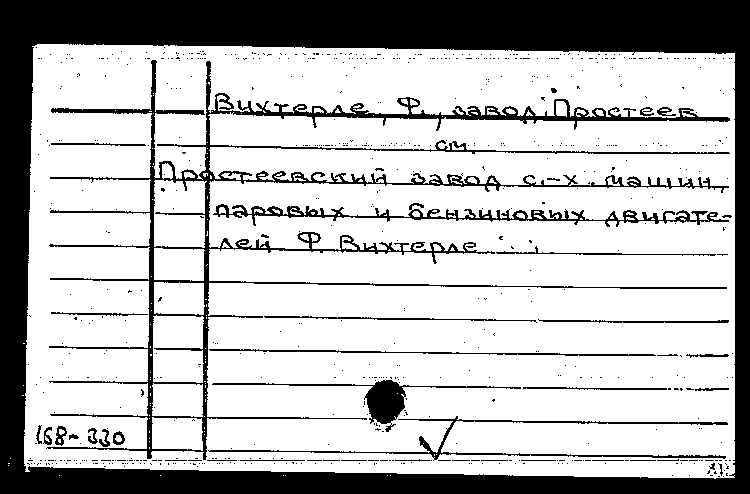 Вихтерле, Ф., завод, Простеев
см.
Простеевский завод с.-х. машин,
паровых и бензиновых двигате-
лей Ф. Вихтерле
168-330